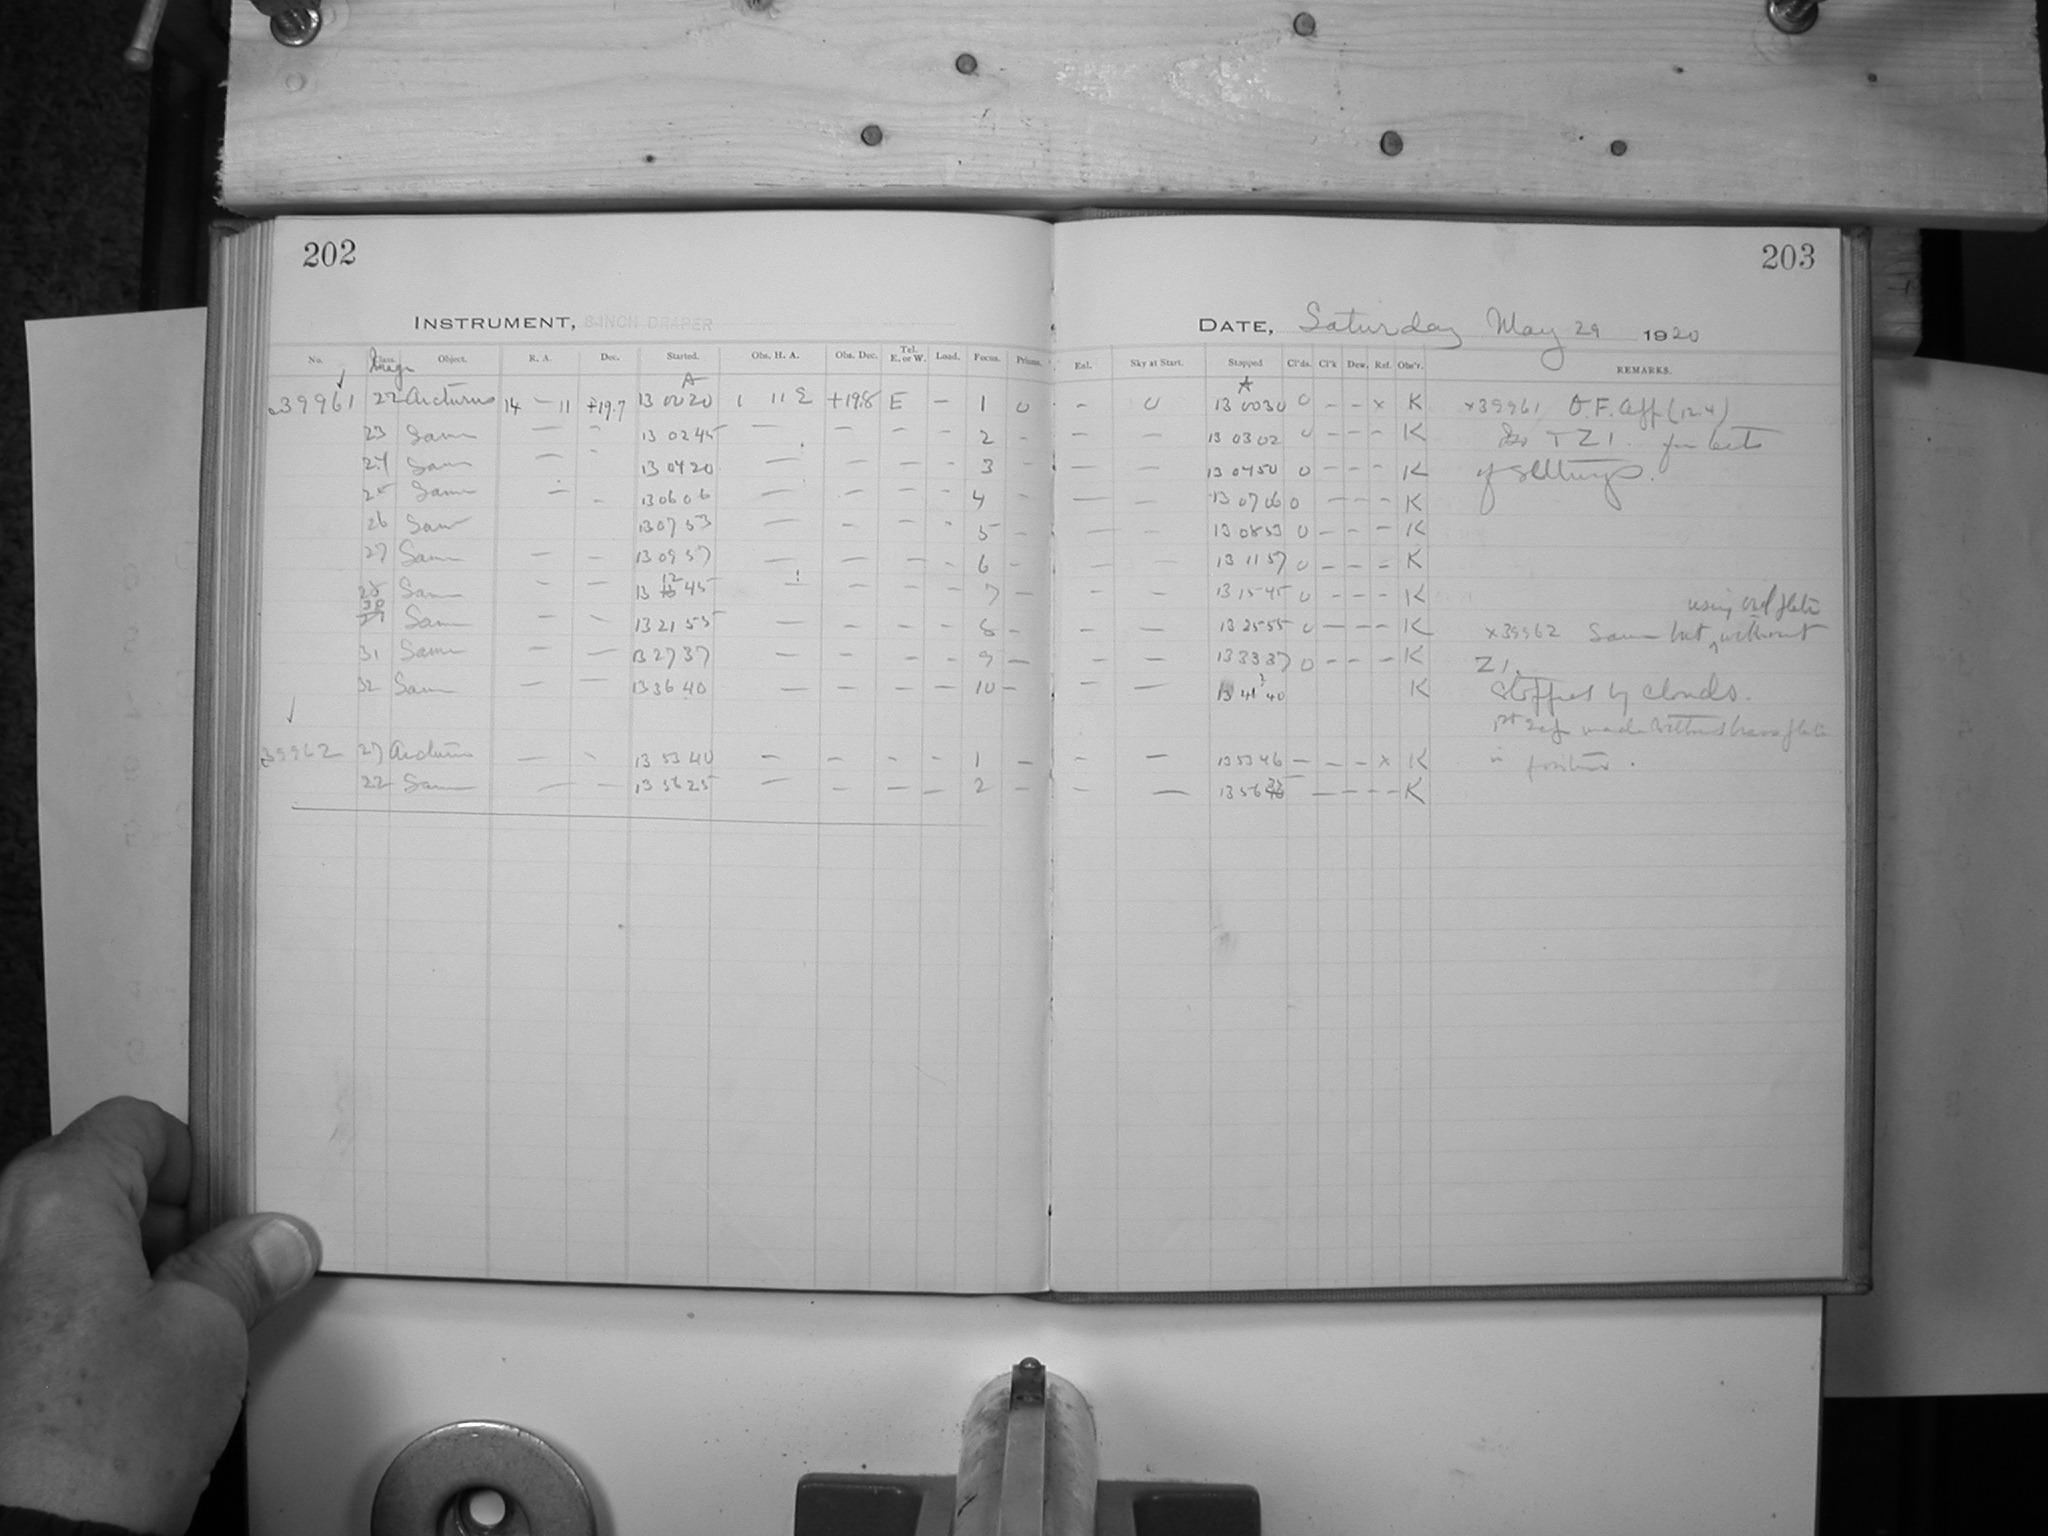 202
203
INSTRUMENT, 8 INCH DRAPER
DATE, Saturday May 29 1920
No. Class. Object. R. A. Dec. Started. Obs. H. A. Obs. Dec. Tel. E. or W. Load. Focus. Prisms. Enl. Sky at Start. Stopped Cl'ds. Cl'k Dew. Ref. Obs'r. REMARKS.
Image
A A
39961 22 Arcturus 14 – 11 +19.7 13 00 20 1 11 E +19.8 E – 1 0 – 0 13 00 30 0 – – x K x39961 O.F. aff (12.4)
23 Same — – 13 02 45 — – – – 2 – – — 13 03 02 0 – – – K TZ1.
24 Same — – 13 04 20 — – – – 3 – — — 13 04 50 0 – – – K of settings.
25 Same – – 13 06 06 — – – – 4 – — — 13 07 06 0 – – – K
26 Same 13 07 53 — – – – 5 – — — 13 08 53 0 – – – K
27 Same – – 13 09 57 — – – – 6 – – — 13 11 57 0 – – – K
28 Same – – 13 12 45 – – – – 7 – – — 13 15 45 0 – – – K
using
30 Same – – 13 21 55 — – – – 8 – – — 13 25 55 0 – – – K x39962 Same but without
31 Same – — 13 27 37 – – – – 9 – – — 13 33 37 0 – – – K Z1.
32 Same – — 13 36 40 – – – – 10 – – — 13 41? 40 K Stopped by clouds.
made without brass plate
39962 27 Arcturus – – 13 53 40 – – – – 1 – – – 13 53 46 – – – x K in position.
22 Same — – 13 56 25 – – – – 2 – – — 13 56 – – – – K